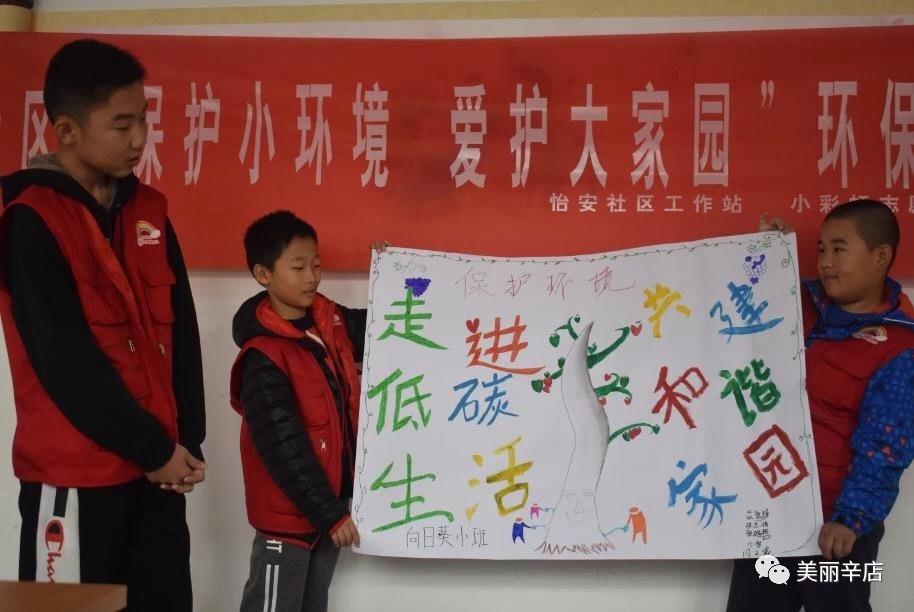 区“保护小环境 爱护大家园”环保
怡安社区工作站 小彩虹志愿
保护环境
走进 共建
低碳 和谐
生活 家园
向日葵小班
Cha
美丽辛店